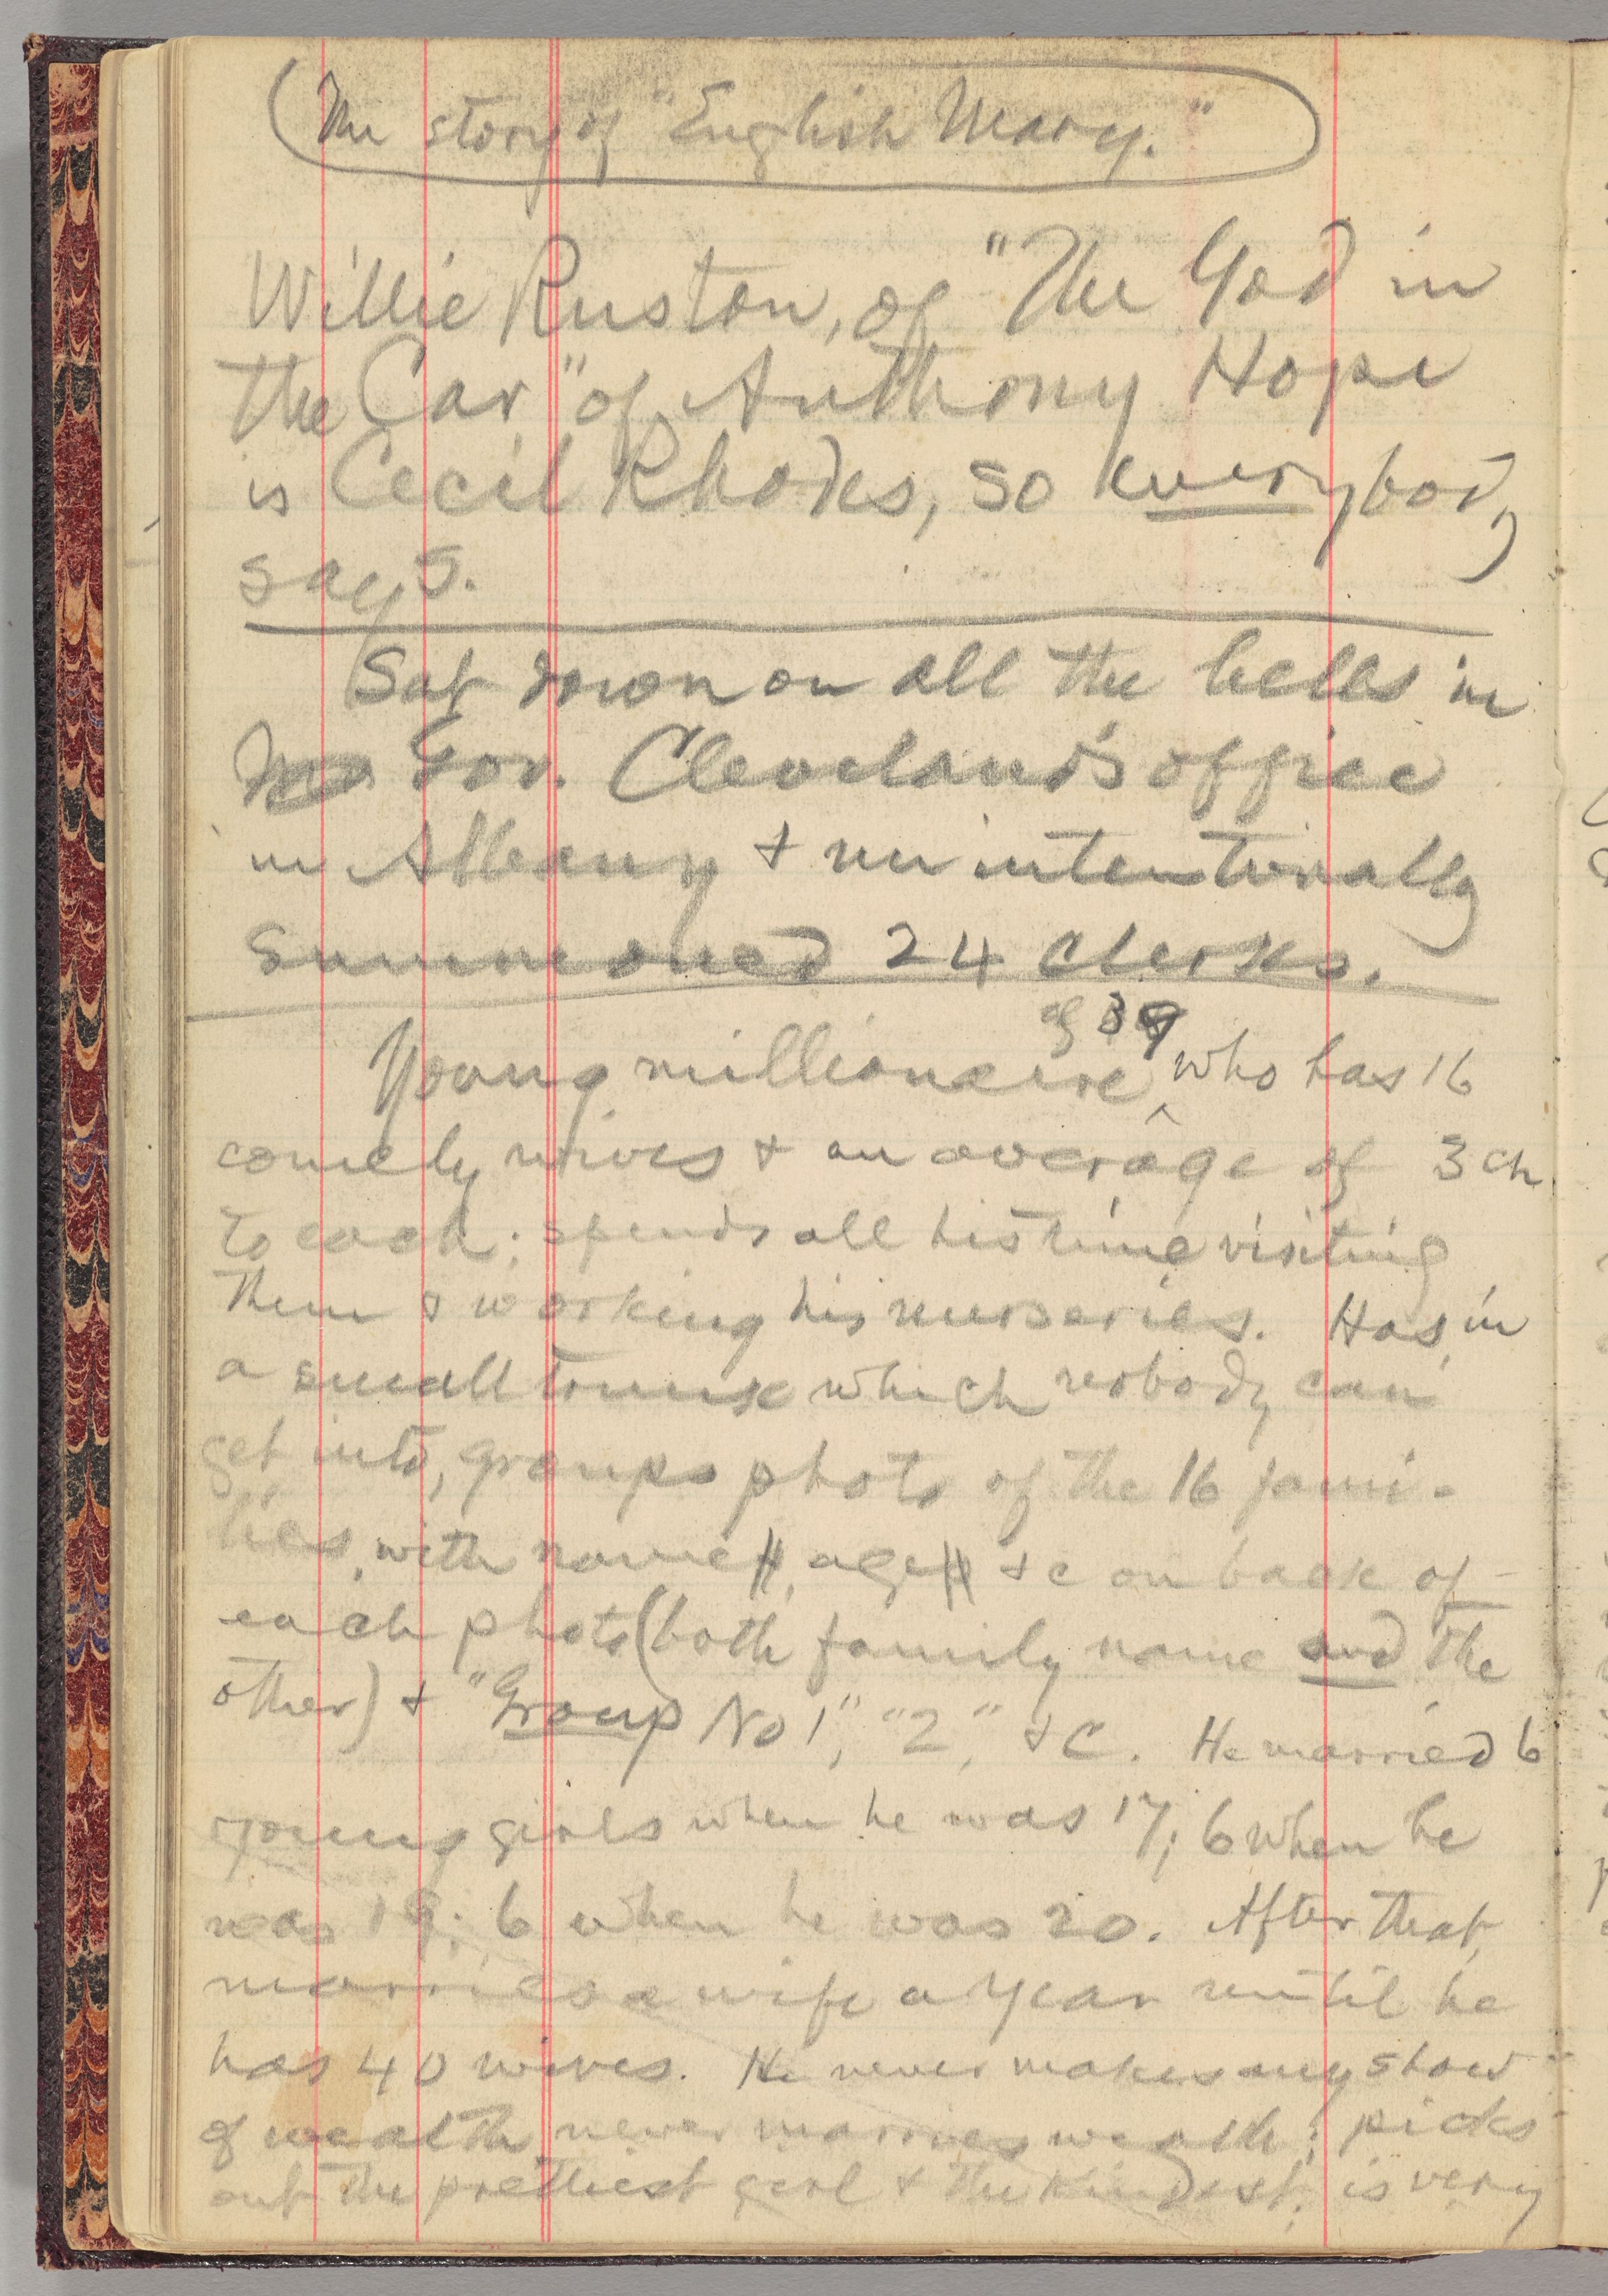 The story of "English Mary."
Willie Ruston, of "The God in
the Car" of Anthony Hope
is Cecil Rhodes, so everybody
says.
Sat down on all the bells in
Gov. Cleveland's office
in Albany & unintentionally
summoned 24 clerks.
of 39
Young millionaire, who has 16
comely wives & an average of 3 ch
to each; spends all his time visiting
them & working his nurseries. Has, in
a small trunk which nobody can
get into, groups photo of the 16 fami-
lies, with name, age &c on back of
each photo (both family name and the
other) & "Group No 1", "2", &c. He married 6
young girls when he was 17; 6 when he
was 19; 6 when he was 20. After that,
marries a wife a year until he
has 40 wives. He never makes any show
of wealth, never marries wealth; picks
out the prettiest girl & the kindest; is very